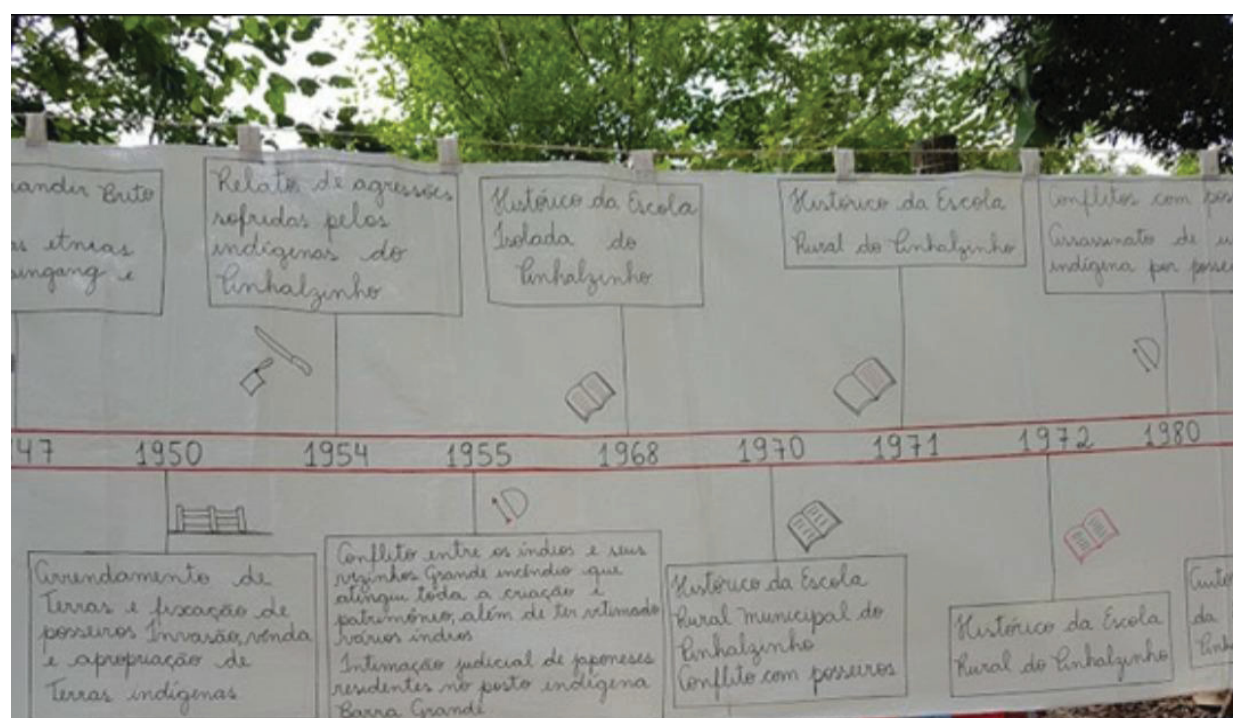 Brito
etnias
e
Relatos de agressões
sofridas pelos
indígenas do
Pinhalzinho
Histórico da Escola
Isolada do
Pinhalzinho
Histórico da Escola
Rural do Pinhalzinho
Conflitos com
Assassinato de
indígena por
47 1950 1954 1955 1968 1970 1971 1972 1980
Arrendamento de
Terras e fixação de
posseiros Invasão, venda
e apropriação de
Terras indígenas
Conflito entre os índios e seus
vizinhos Grande incêndio que
atingiu toda a criação e
patrimônio, além de ter vitimado
vários índios
Intimação judicial de japoneses
residentes no posto indígena
Barra Grande.
Histórico da Escola
Rural Municipal do
Pinhalzinho
Conflito com posseiros
Histórico da Escola
Rural do Pinhalzinho
da